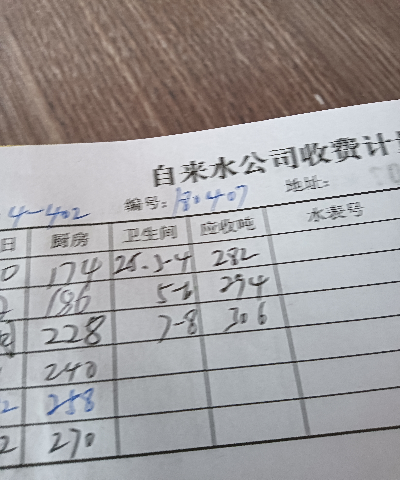 自来水公司收费计
4-402 编号: 180407 地址:
日 厨房 卫生间 应收吨 水表号
0 174 25.3-4 282
186 5-6 294
228 7-8 306
240
2 258
2 270